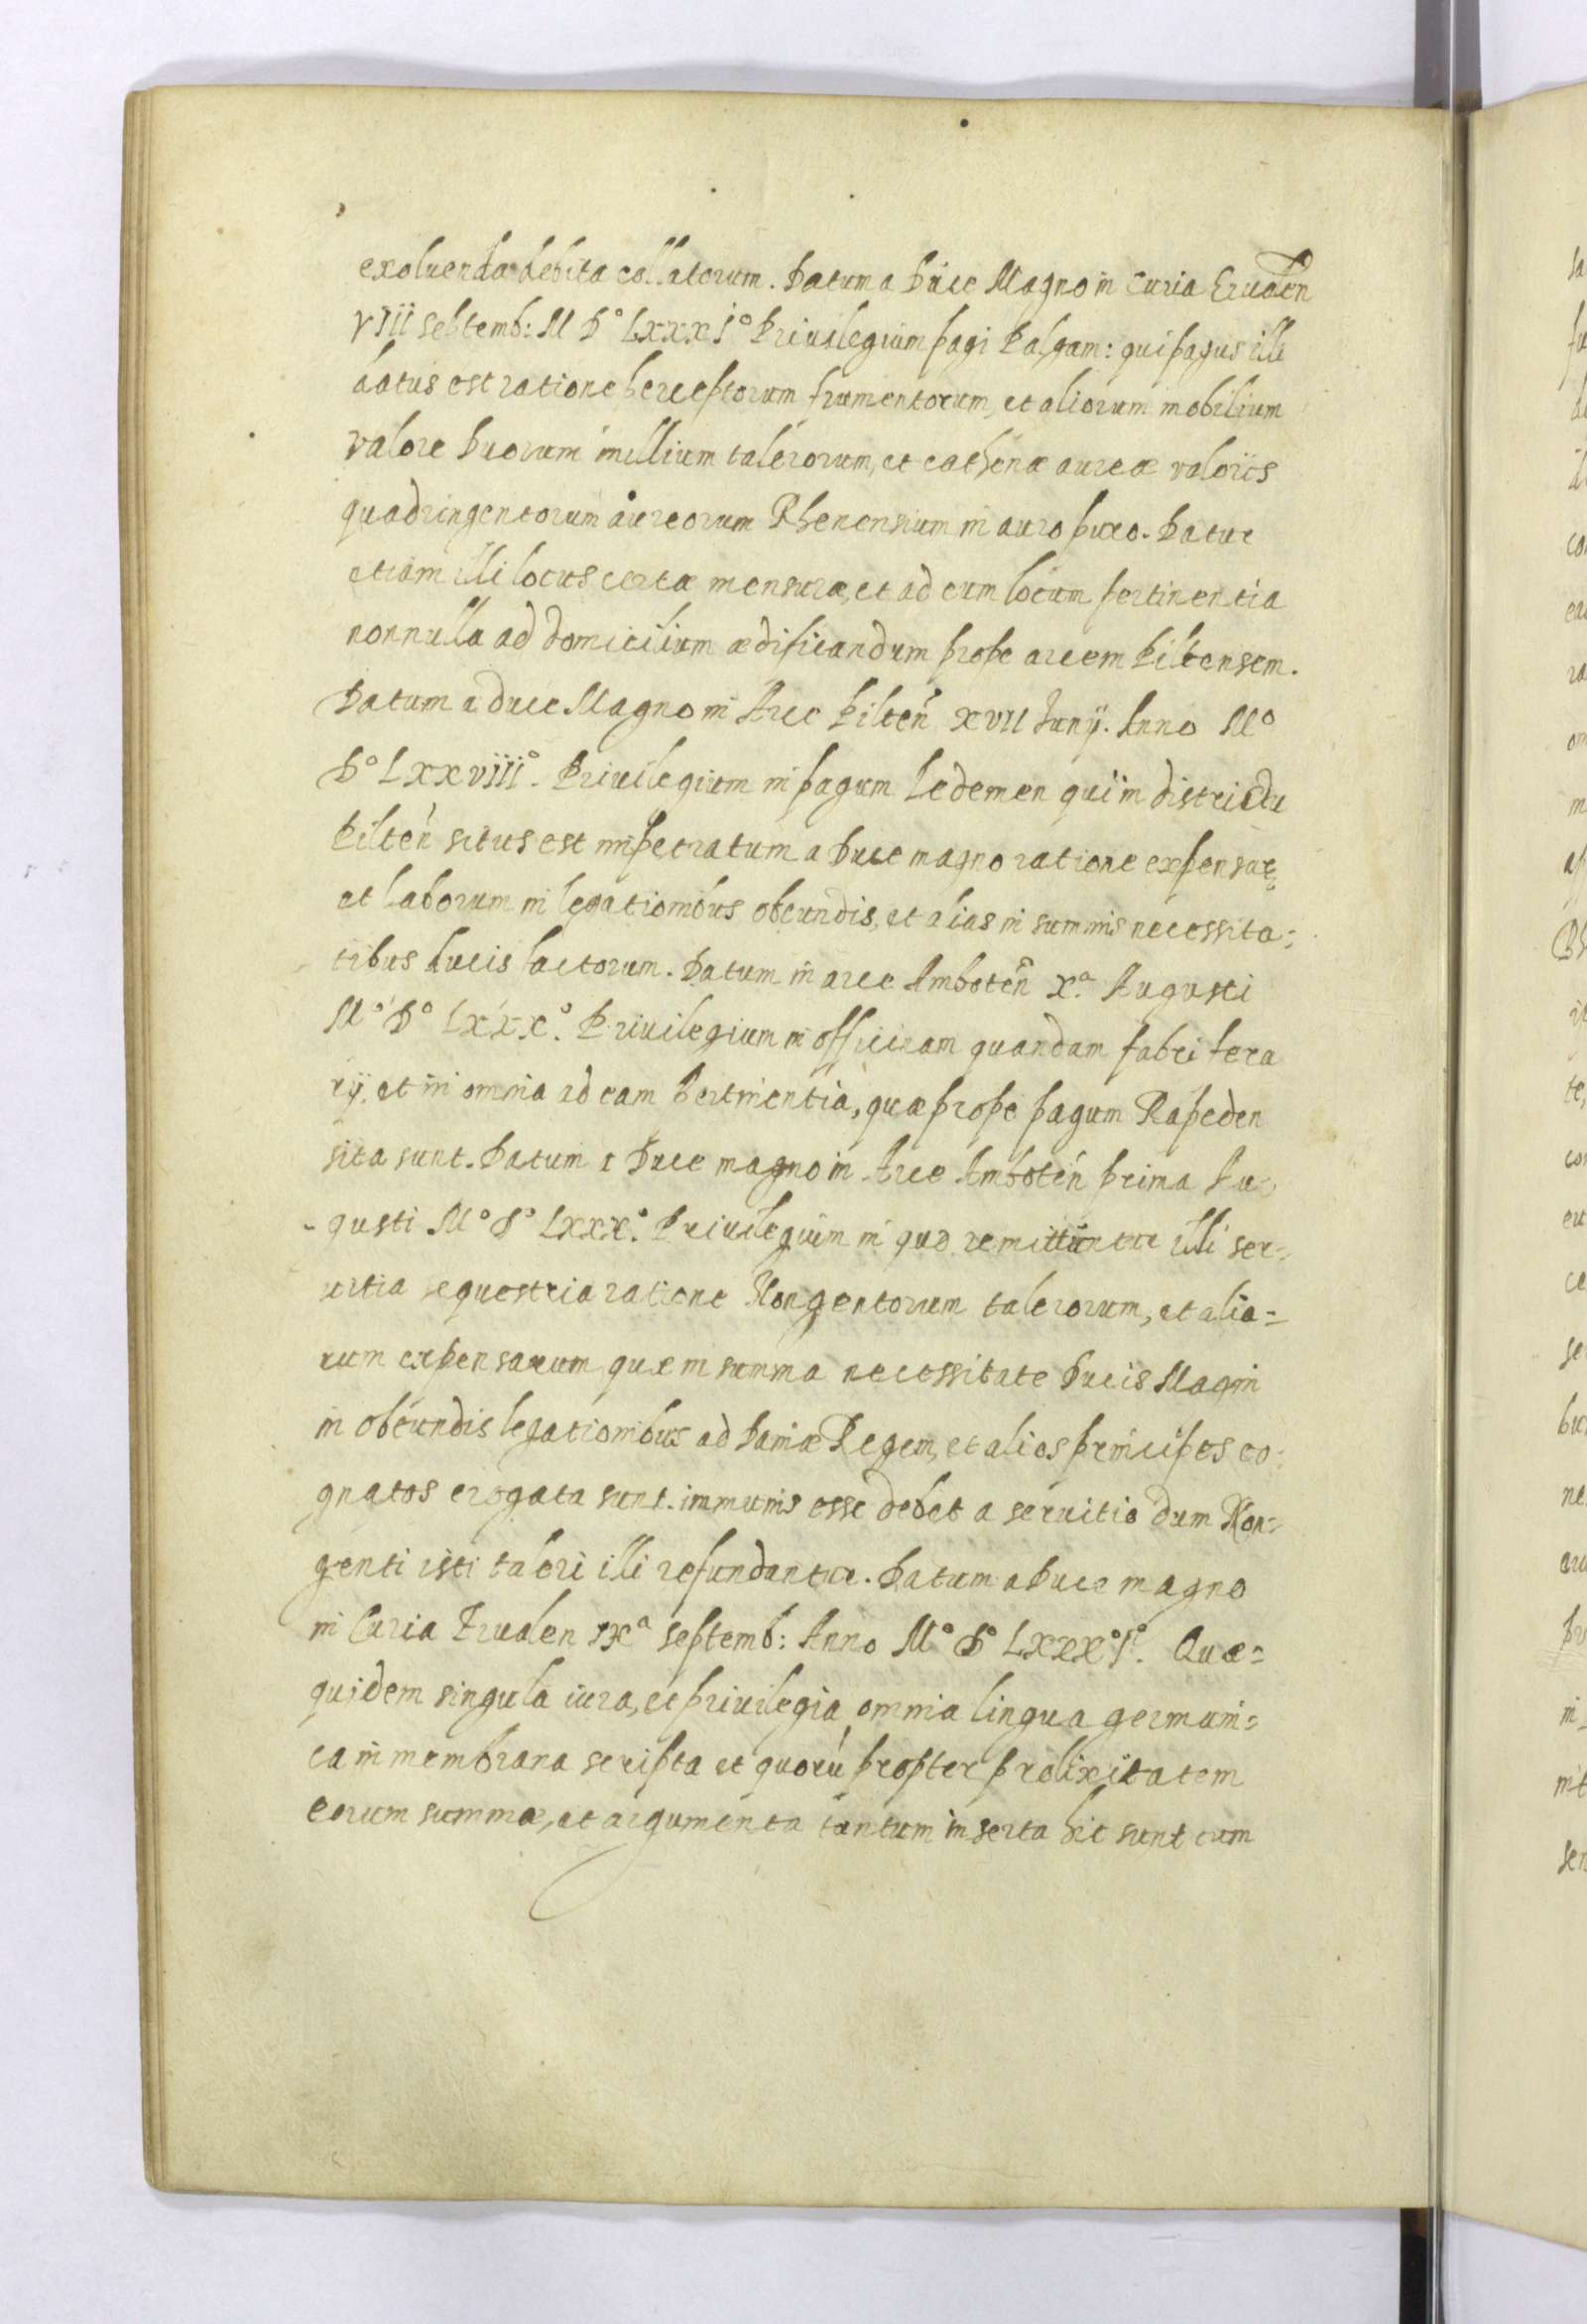 exoluenda debita collatorum. Datum a Duce Magno in Curia Erualen
VIII Septemb: M D° LXXXI° Priuilegium pagi Palgam: qui pagus illi
datus est ratione perceptorum frumentorum, et aliorum mobilium
valore Duorum millium talerorum, et cathenæ aureæ valoris
quadringentorum aureorum Rhenensium in auro puro. Datur
etiam illi locus certæ mensuræ, et ad eum locum pertinentia
nonnulla ad domicilium ædificandum prope arcem Piltensem.
Datum a duce Magno in Arce Pilteń XVII Iunij. Anno M°
D° LXXVIII°. Priuilegium in pagum Ledemen qui in districtu
Pilteń situs est impetratum a Duce magno ratione expensarū
et laborum in legationibus obeundis, et alias in summis necessita=
tibus ducis factorum. Datum in arce Amboteń X.ª Augusti
M° D° LXXX°. Priuilegium in officinam quandam fabri fera
rij, et in omnia ad eam pertinentia, quæ prope pagum Rapeden
sita sunt. Datum a Duce magno in Arce Amboteń prima Au=
gusti M° D° LXXX°. Priuilegium in quo remittuntur illi ser=
uitia equestria ratione Nongentorum talerorum, et alia=
rum expensarum quæ in summa necessitate Ducis Magni
in obeundis legationibus ad Daniæ Regem, et alios principes co=
gnatos erogata sunt. immunis esse debet a seruitio dum Non=
genti isti taleri illi refundantur. Datum a Duce magno
in Curia Erualen IXª Septemb: Anno M° D° LXXX°I°. Quæ=
quidem singula iura, et priuilegia omnia lingua germani=
ca in membrana scripta et quorū propter prolixitatem
eorum summæ, et argumenta tantum inserta hic sunt cum